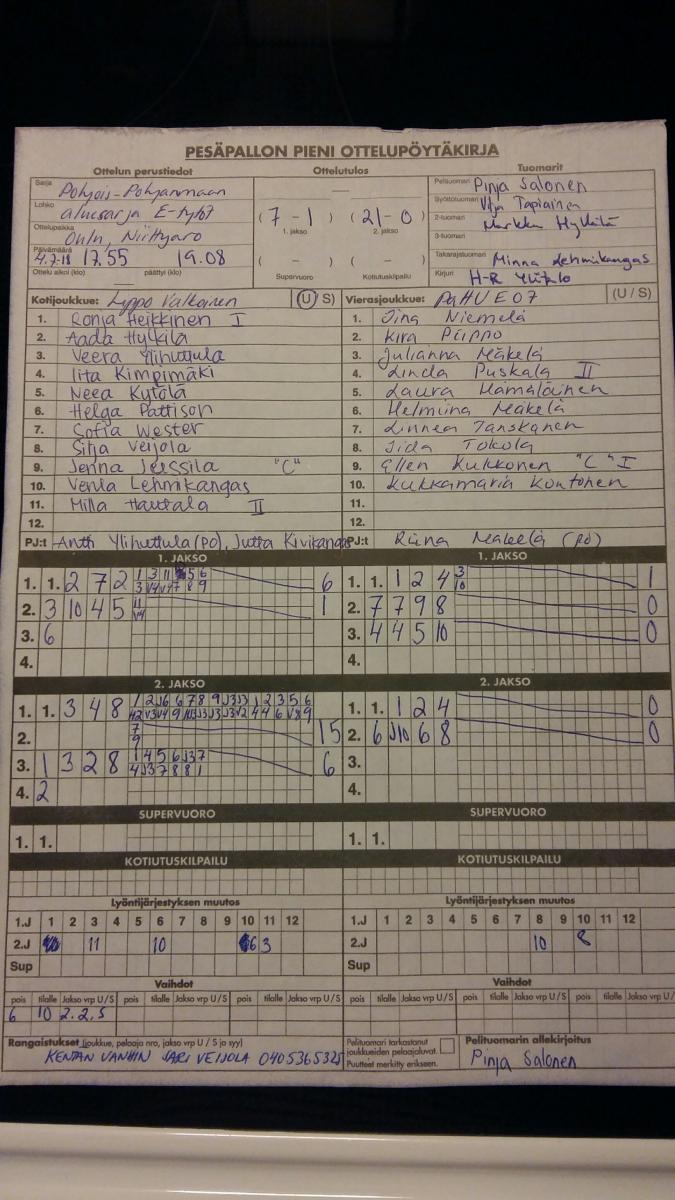 PESÄPALLON PIENI OTTELUPÖYTÄKIRJA
Ottelun perustiedot Ottelutulos Tuomarit
Sarja Pohjois-Pohjanmaan
Lohko aluesarja E-tytöt
Ottelupaikka Oulu, Niittyaro
Päivämäärä 4.7.18 17.55 19.08
Ottelu alkoi (klo) päättyi (klo)
( 7 - 1 ) ( 21 - 0 )
1. jakso 2. jakso
( - ) ( - )
Supervuoro Kotiutuskilpailu
Pelituomari Pinja Salonen
Syöttötuomari Tapiainen
2-tuomari Markku Hylkilä
3-tuomari
Takarajatuomari Minna Lehmikangas
Kirjuri H-R Ylitalo
Kotijoukkue: Lippo Valkoinen (U/S)
1. Ronja Heikkinen I
2. Aada Hylkilä
3. Veera Ylihuttula
4. Iita Kimpimäki
5. Neea Kytölä
6. Helga Pattison
7. Sofia Wester
8. Silja Veijola
9. Jenna Jussila "C"
10. Venla Lehmikangas
11. Milla Hautala II
12.
PJ:t Antti Ylihuttula (PO), Jutta Kivikangas
Vierasjoukkue: PattU E07 (U/S)
1. Jina Niemelä
2. Kira Piippo
3. Julianna Mäkelä
4. Linda Puskala II
5. Laura Hämäläinen
6. Helmiina Mäkelä
7. Linnea Tanskanen
8. Iida Tokola
9. Ellen Kukkonen "C" I
10. Kukkamaria Kontonen
11.
12.
PJ:t Riina Mäkelä (PO)
1. JAKSO 1. JAKSO
1. 1. 2 7 2 6
2. 3 10 4 5 1
3. 6
4.
1. 1. 1 2 4 1
2. 7 7 9 8 0
3. 4 4 5 10 0
4.
2. JAKSO 2. JAKSO
1. 1. 3 4 8
2. 15
3. 1 3 2 8 6
4. 2
1. 1. 1 2 4 0
2. 6 J10 6 8 0
3.
4.
SUPERVUORO SUPERVUORO
1. 1. 1. 1.
KOTIUTUSKILPAILU KOTIUTUSKILPAILU
Lyöntijärjestyksen muutos Lyöntijärjestyksen muutos
1.J 1 2 3 4 5 6 7 8 9 10 11 12 1.J 1 2 3 4 5 6 7 8 9 10 11 12
2.J 11 10 6 3 2.J 10 8
Sup Sup
Vaihdot Vaihdot
pois tilalle Jakso vrp U/S pois tilalle Jakso vrp U/S pois tilalle Jakso vrp U/S pois tilalle Jakso vrp U/S pois tilalle Jakso vrp U/S pois tilalle Jakso vrp U/S
6 10 2.2.S
Rangaistukset (joukkue, pelaaja nro, jakso vrp U / S ja syy)
KENTÄN VANHIN JARI VEIJOLA 0405365325
Pelituomari tarkastanut
joukkueiden pelaajaluvat.
Puutteet merkitty erikseen.
Pelituomarin allekirjoitus
Pinja Salonen